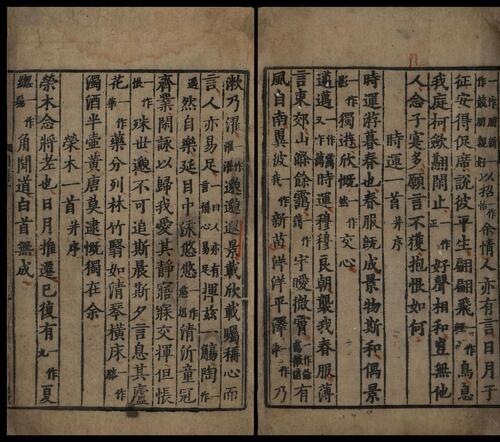 以招余情人亦有言日月于
征安得促席說彼平生翩翩飛鳥息
我庭柯斂翮閒止一作正好聲相和豈無他
人念子寔多願言不獲抱恨如何
時運一首并序
時運游暮春也春服既成景物斯和偶景
一作影獨遊欣慨一作然交心
邁邁時運穆穆良朝襲我春服薄
言東郊山滌餘靄宇曖微霄有
風自南翼彼新苗洋洋平澤一作乃
漱乃濯邈邈遐景載欣載矚稱心而
言人亦易足一曰人亦有言稱心易足揮茲一觴陶一作
然自樂延目中流悠悠清沂童冠
齊業閑詠以歸我愛其靜寤寐交揮但悵一作
恨殊世邈不可追斯晨斯夕言息其廬
花一作華藥分列林竹翳如清琴橫床一作
濁酒半壺黃唐莫逮慨獨在余
榮木一首并序
榮木念將老也日月推遷已復有一作九夏
總角聞道白首無成